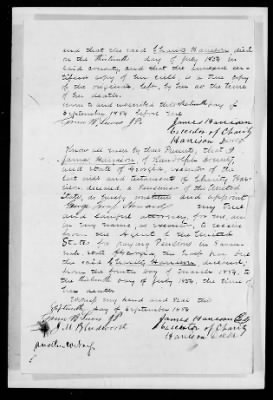 and that the said Charity Harrison died
on the thirteenth day of July 1854 in
said county and that the annexed cer-
tified copy of her will is a true copy
of the original, left by her at the time
of her death.
Sworn to and subscribed this day of
September 1854 before me
James Harrison
executor of Charity
Harrison
Know all men by these Presents, that I
James Harrison of Randolph County,
and state of Georgia, executor of the
last will and testament of Charity Har-
rison deceased, a Pensioner of the United
States, do hereby constitute and appoint
my true
and lawful attorney, for me, and
in my name, as executor, to receive
from the Agent of the United
States for paying Pensions in Savan-
nah, State of Georgia, the half
the said Charity Harrison deceased,
from the fourth day of March 1854, to
the thirteenth day of July 1854, the time of
her death.
Witness my hand and seal this
day of September 1854
James Harrison
executor of Charity
Harrison